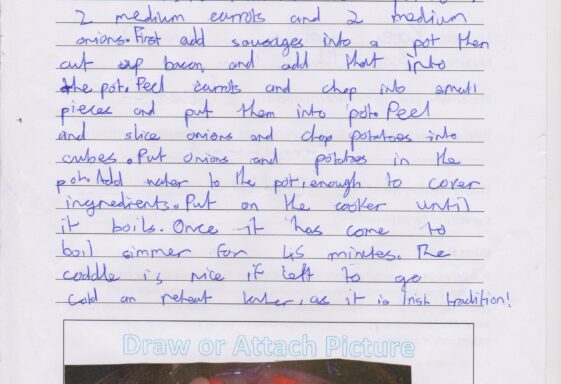 2 medium carrots and 2 medium
onions. First add sausages into a pot then
cut up bacon and add that into
the pot. Peel carrots and chop into small
pieces and put them into pot. Peel
and slice onions and chop potatoes into
cubes. Put onions and potatoes in the
pot. Add water to the pot, enough to cover
ingredients. Put on the cooker until
it boils. Once it has come to
boil simmer for 45 minutes. The
coddle is nice if left to go
cold an reheat later, as it is Irish tradition!
Draw or Attach Picture